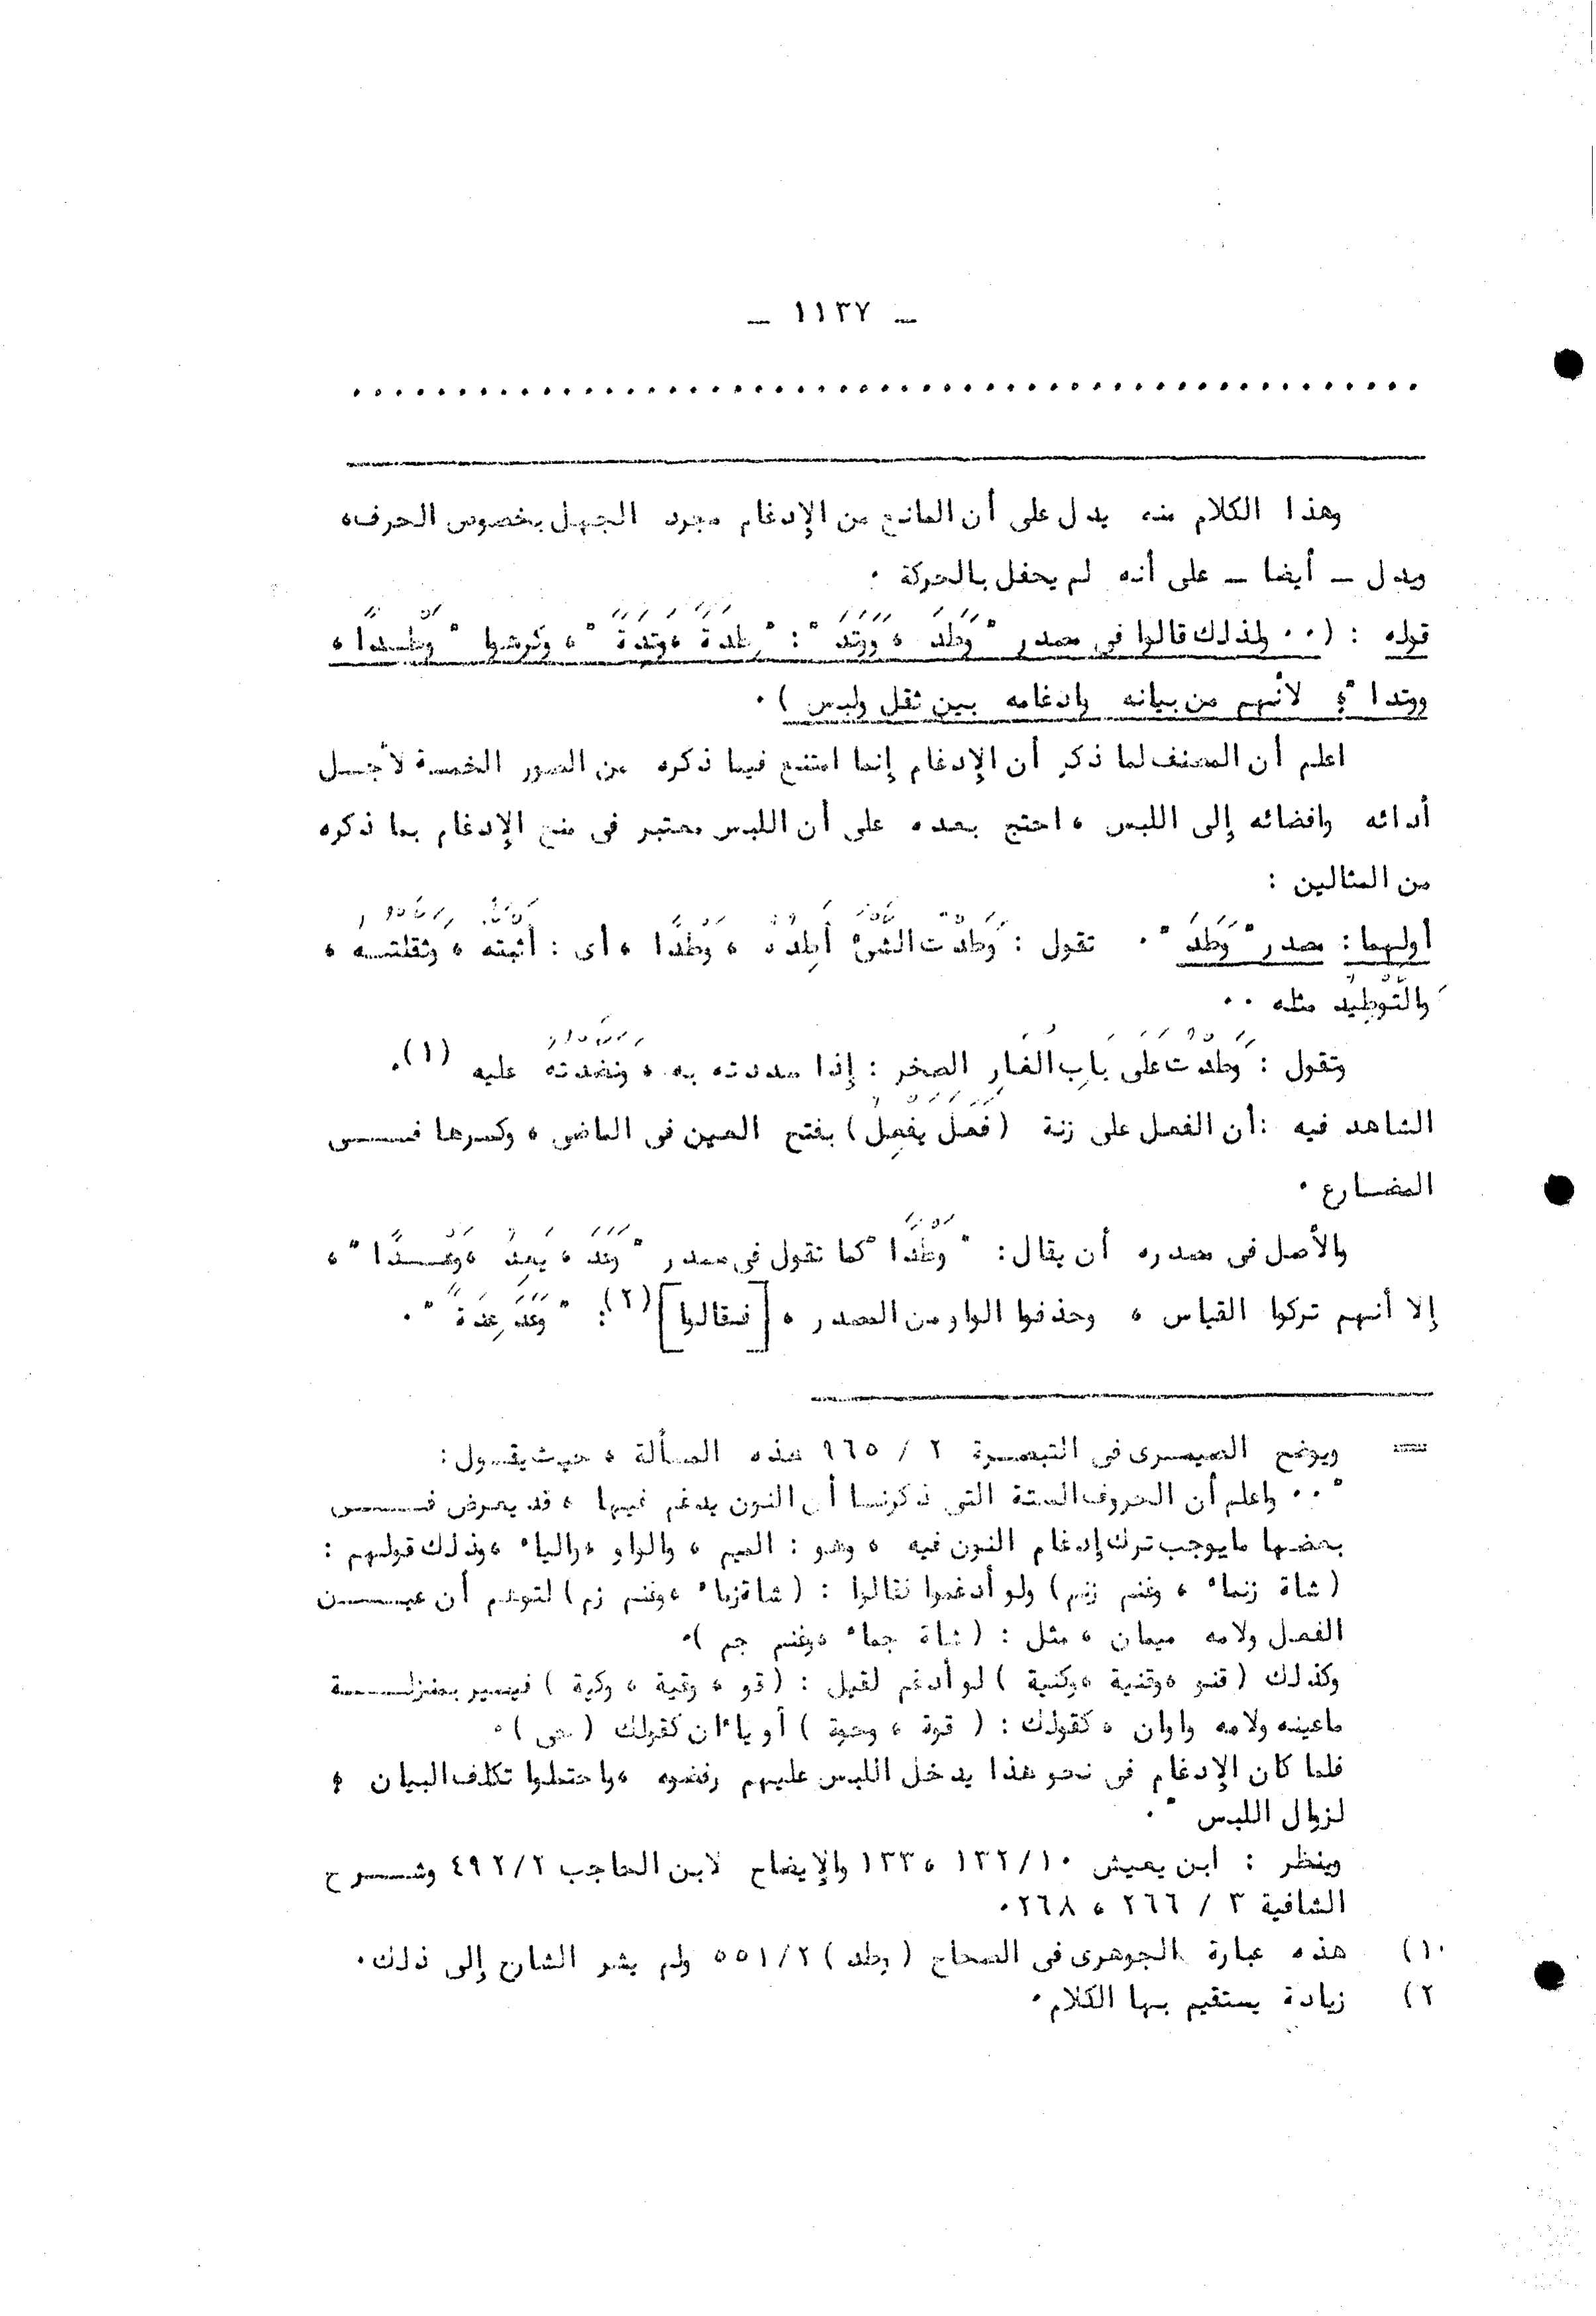 ـ ١١٣٧ ـ
وهذا الكلام منه يدل على أن المانع من الإدغام مجرد الجهل بخصوص الحرف،
ويدل ـ أيضا ـ على أنه لم يحفل بالحركة .
قوله : ( . . ولذلك قالوا فى مصدر " وَطَدَ ، ووَتَدَ " : " طِدَةً ، وتِدَةً " ، وكَرِهُوا " وَطْـدًا ،
ووتدا " ؛ لأنهم من بيانه وإدغامه بين ثقل ولبس ) .
اعلم أن المصنف لما ذكر أن الإدغام إنما امتنع فيما ذكره من الصور الخمسة لأجـل
أدائه وافضائه إلى اللبس ، احتج بعده على أن اللبس معتبر فى منع الإدغام بما ذكره
من المثالين :
أولهما : مصدر " وَطَدَ " . تقول : وَطَدْتُ الشىْءَ أَطِدُهُ ، وَطْدًا ، أى : أَثْبَتُّهُ ، وثَقَّلْتُـهُ ،
والتَّوْطِيدُ مثله . .
وتقول : وَطَدْتُ عَلَى بَابِ الغَارِ الصخر : إذا سددته به ، ونَضَدْتَهُ عليه (١).
الشاهد فيه : أن الفعل على زنة (فَعَلَ يَفْعِلُ) بفتح العين فى الماضى ، وكسرها فــى
المضـارع .
والأصل فى مصدره أن يقال : " وَطْدًا " كما تقول فى مصدر " وَعَدَ ، يَعِدُ ، وَعْـدًا " ،
إلا أنهم تركوا القياس ، وحذفوا الواو من المصدر ، [فـقالوا](٢): " وَعَدَ عِدَةً " .
== ويوضح الصيمـرى فى التبصـرة ٢ / ٩٦٥ هذه المسألة ، حيث يقـول :
" . . واعلم أن الحروف الستة التى ذكرنـا أن النون يدغم فيها ، قد يعرض فــى
بعضها ما يوجب ترك إدغام النون فيه ، وهو : الميم ، والواو ، والياء ، وذلك قولهم :
( شاة زنماء ، وغنم زنم) ولو أدغموا فقالوا : ( شاة زماء ، وغنم زم) لتوهم أن عيــن
الفعل ولامه ميمان ، مثل : ( شاة جماء ، وغنم جم ).
وكذلك ( قنو ، وقنية ، وكنية ) لو أدغم لقيل : ( قو ، وقية ، وكية ) فيصير بمنزلــة
ما عينه ولامه واوان ، كقولك : ( قوة ، وحوة ) أو ياءان كقولك ( حى ) .
فلما كان الإدغام فى نحو هذا يدخل اللبس عليهم رفضوه ، واحتملوا تكلف البيان ؛
لزوال اللبس " .
وينظر : ابن يعيش ١٠/ ١٣٢ ، ١٣٣ والإيضاح لابن الحاجب ٢/ ٤٩٢ وشـرح
الشافية ٣ / ٢٦٦ ، ٢٦٨.
١) هذه عبارة الجوهرى فى الصحاح ( وطد ) ٢/ ٥٥١ ولم يشر الشارح إلى ذلك .
٢) زيادة يستقيم بها الكلام .